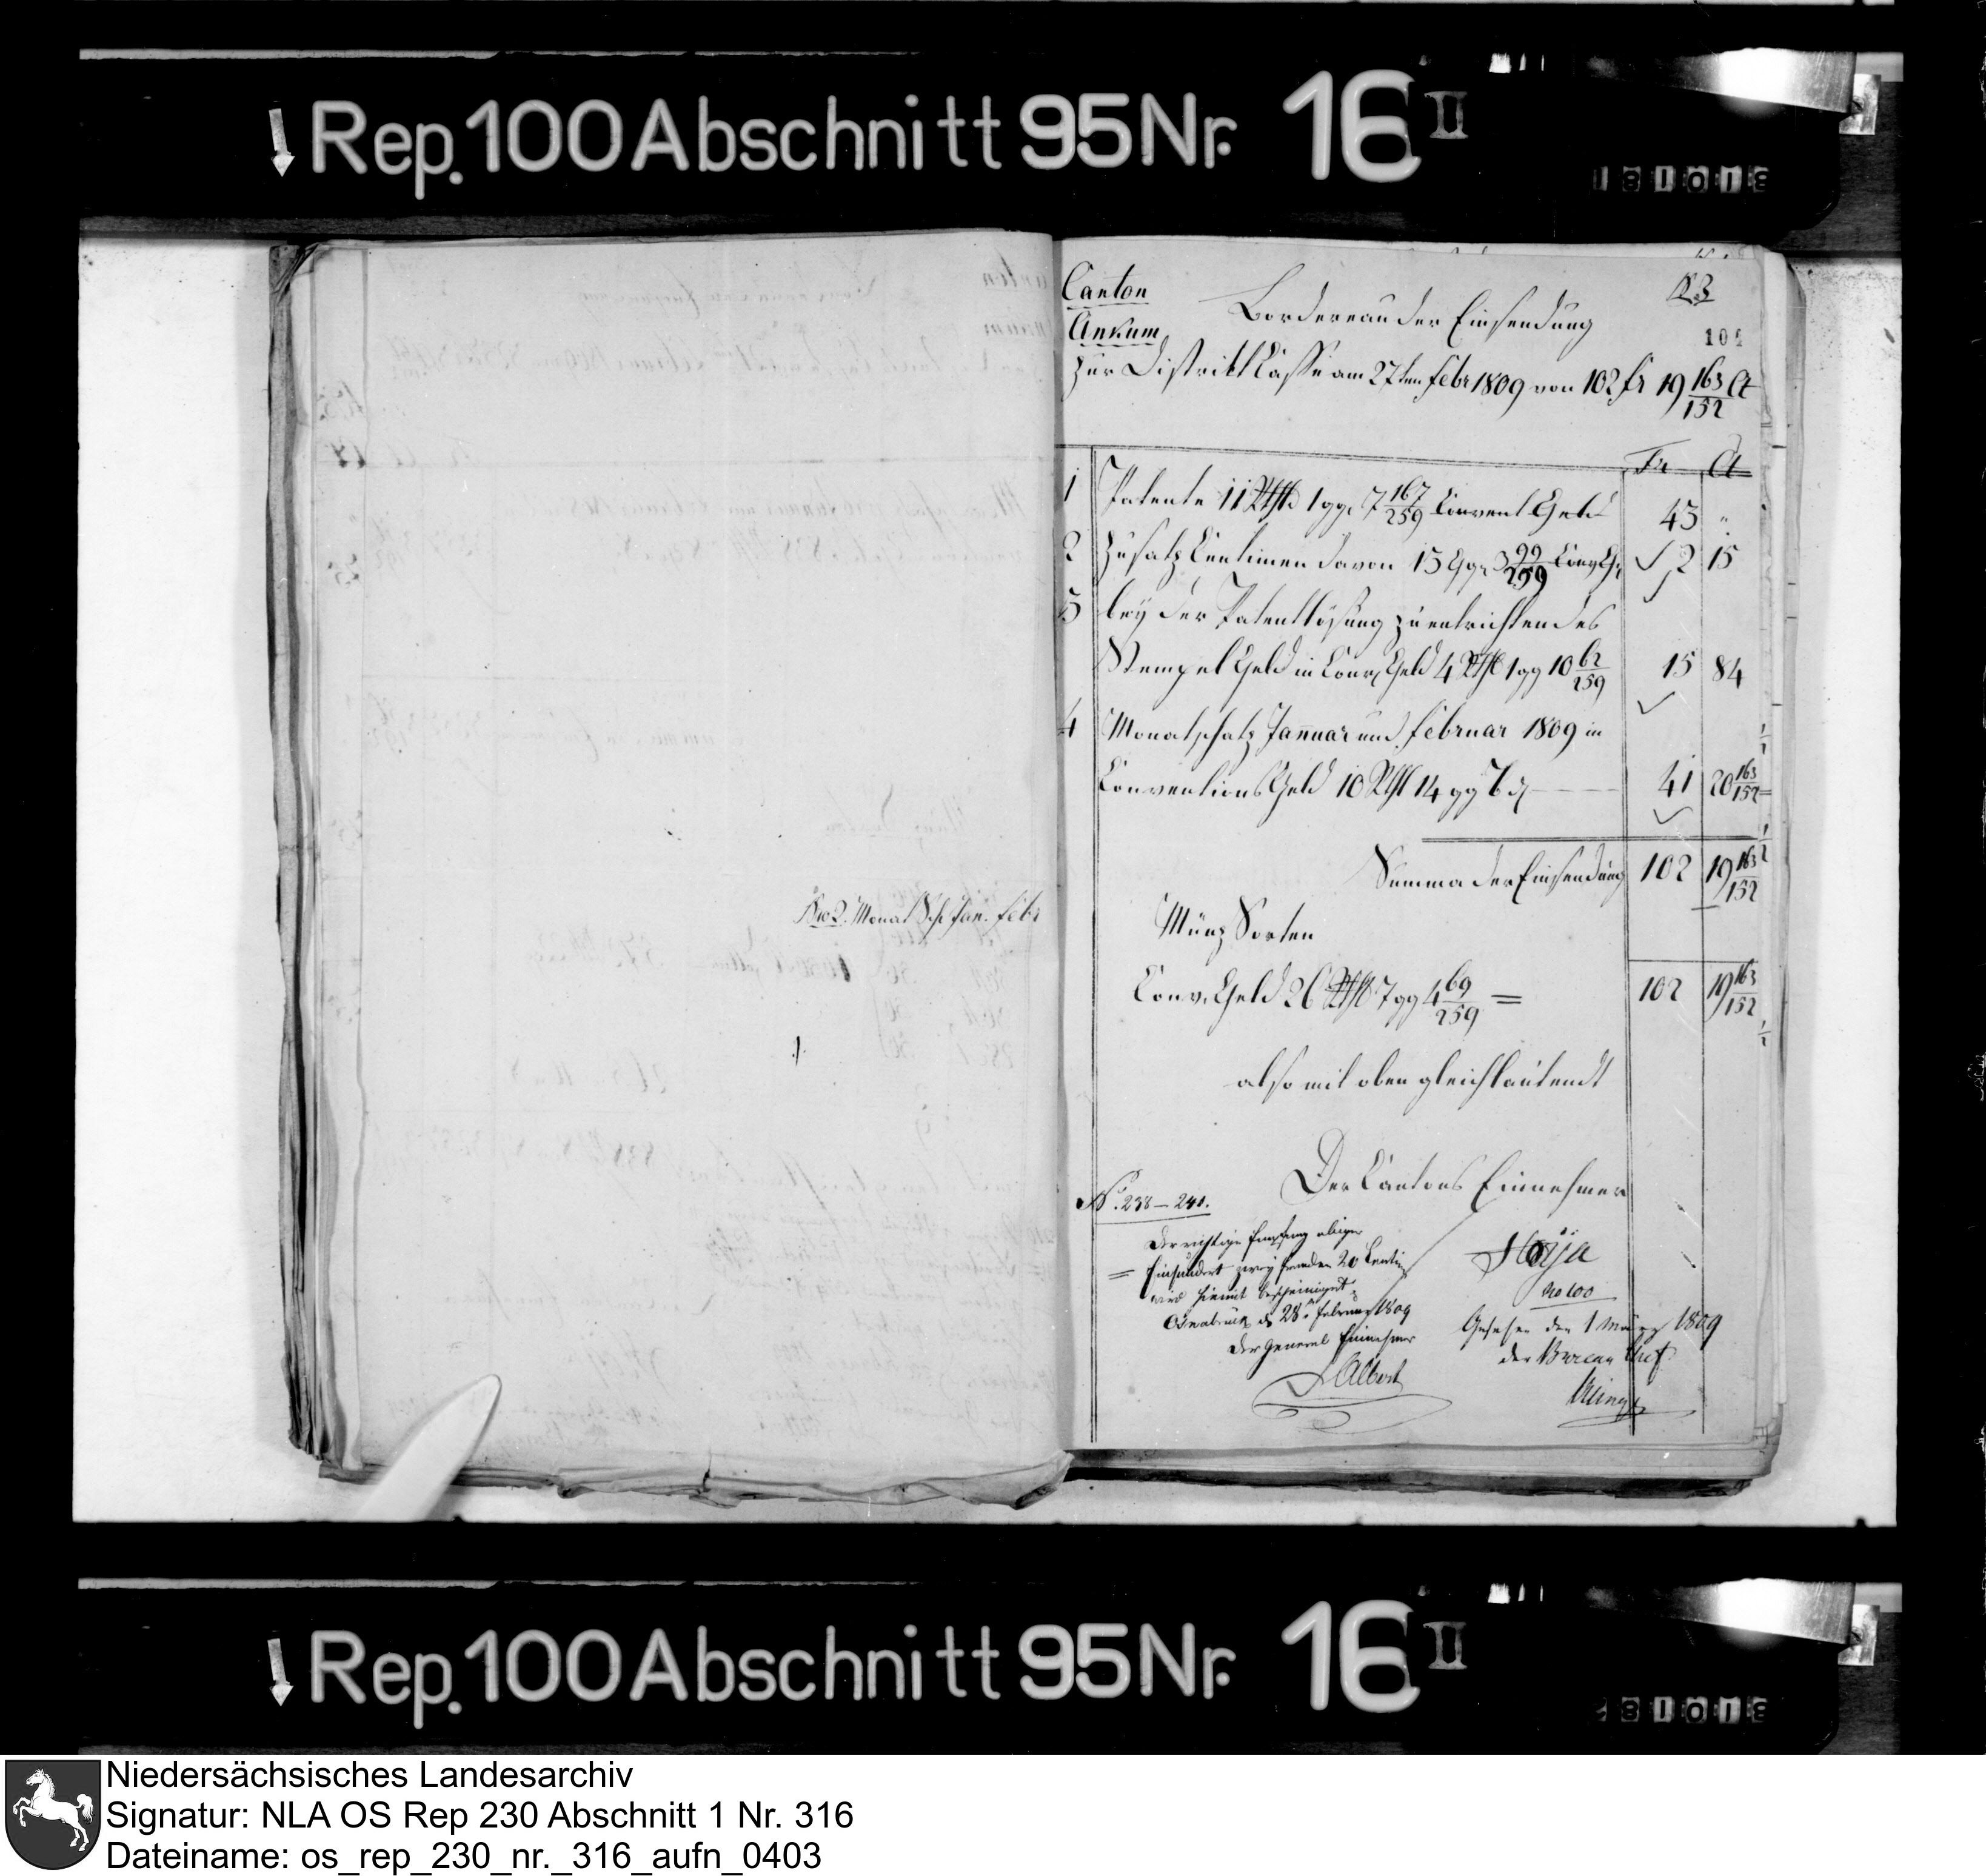 Rep. 100 Abschnitt 95 Nr. 16 II
No 2. Monat Sch. Jan. Febr
Canton
Ankum
123
104
Bordereau der Einsendung
zur Distrikt Casse am 27ten Febr 1809 von 102 fr 19 163/152 Ct
Fr Ct
1 Patente 11 Rthlr 1 gg. 7 167/259 Convent Geld 43 "
2 Zusatz Centimen davon 15 ggr 3 99/259 Conv. G. 2 15
3 bey der Patentlösung zu entrichtendes
Stempel Geld in Conv. Geld 4 Rthl 1 gg 10 62/259 15 84
4 Monatschatz Januar und Februar 1809 in
Conventions Geld 10 Rthl 14 gg 7 d 41 20 163/152
Summa der Einsendung 102 19 163/152
Münz Sorten
Conv. Geld 26 Rthl 7 gg 4 69/259 = 102 19 163/152
also mit oben gleichlautendt
Der Cantons Einnehmer
No. 238 – 241.
Der richtige Empfang obiger
= Einhundert zwey franken 20 Centim
wird hiemit bescheiniget
Osnabrück d 28. Februar 1809
Der General Einnehmer
Albert
Hoija
No 100
Gesehen den 1 März 1809
der Bureau Chef
Rep. 100 Abschnitt 95 Nr. 16 II
Niedersächsisches Landesarchiv
Signatur: NLA OS Rep 230 Abschnitt 1 Nr. 316
Dateiname: os_rep_230_nr._316_aufn_0403